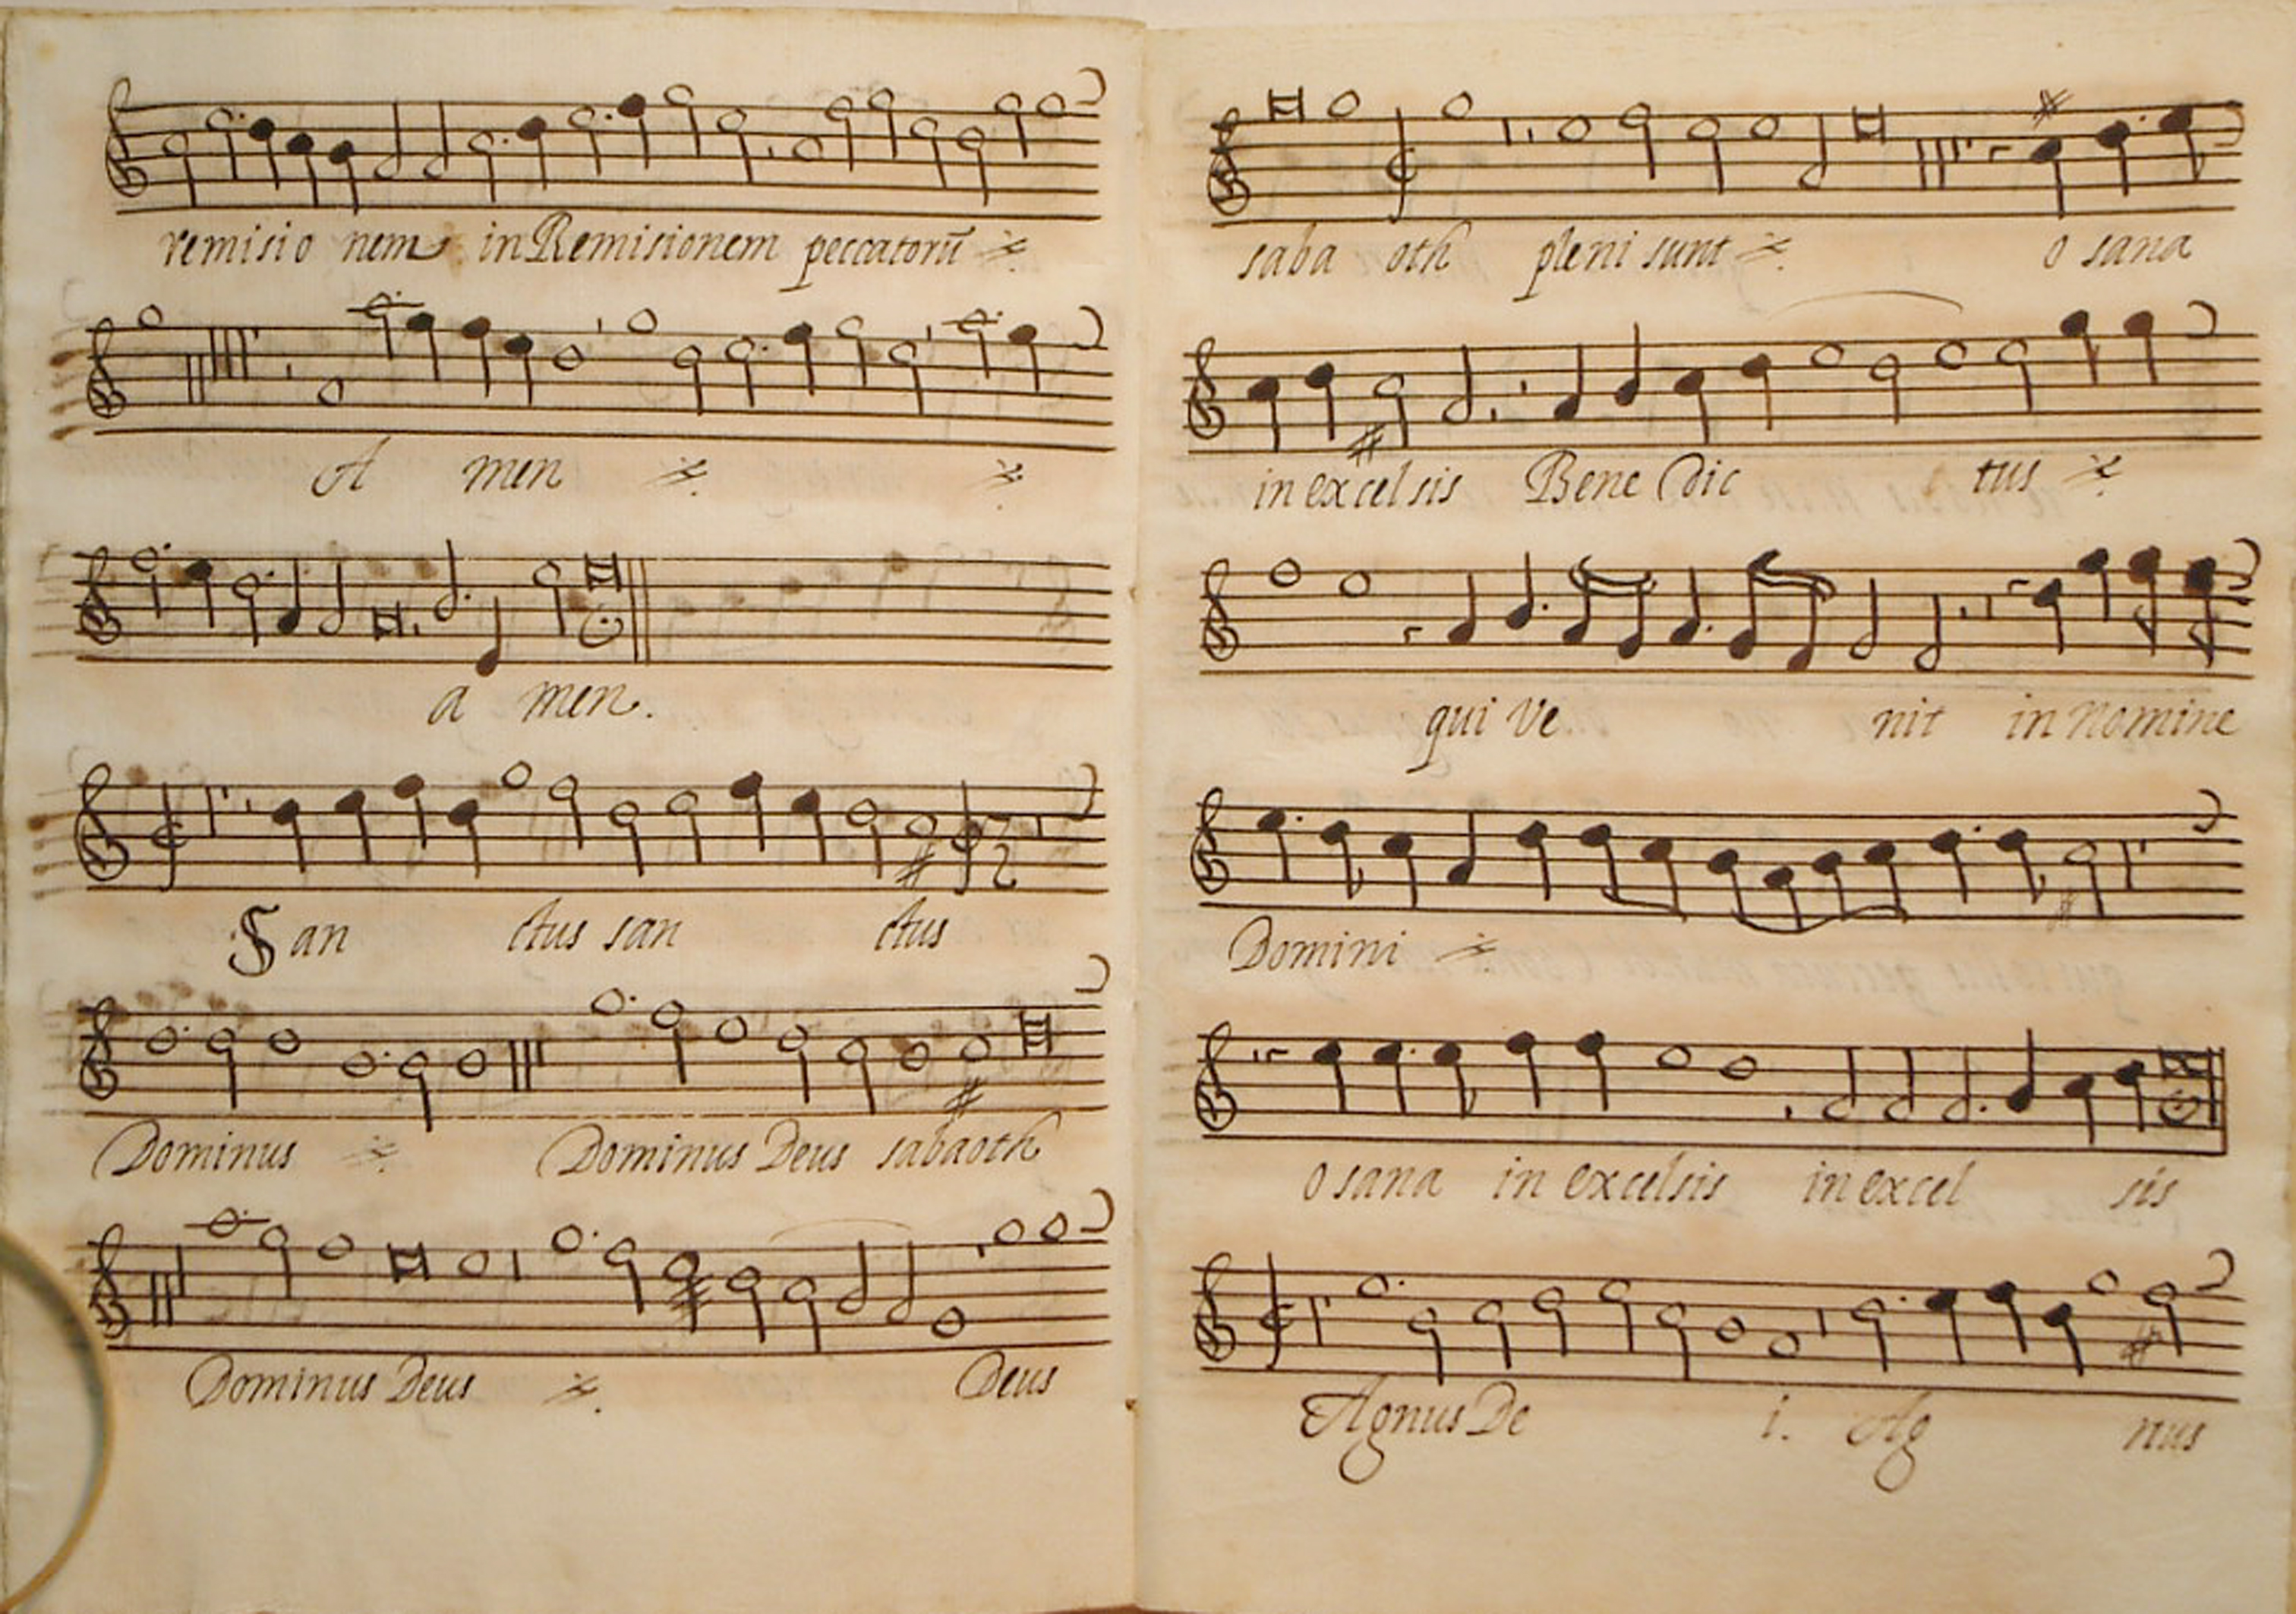 remisio nem in Remisionem peccatorũ
A men
a men.
San ctus san ctus
Dominus Dominus Deus sabaoth
Dominus Deus Deus
saba oth pleni sunt o sana
in excelsis Bene dic tus
qui ve nit in nomine
Domini
o sana in excelsis in excel sis
Agnus De i. Ag nus